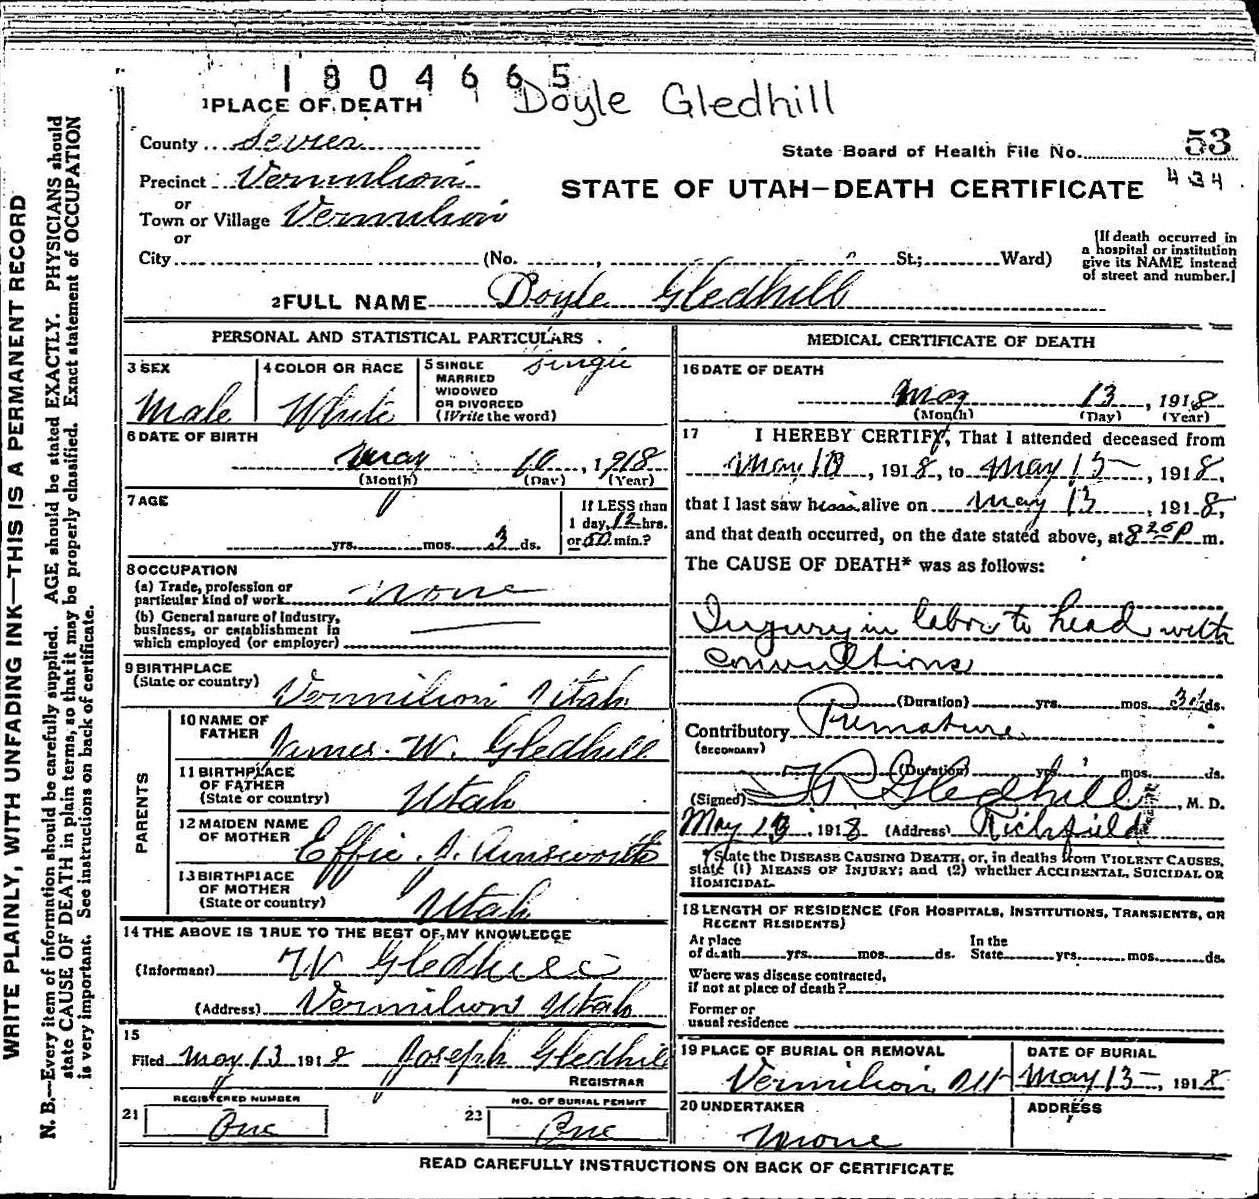 1804665
Doyle Gledhill
1 PLACE OF DEATH
County Sevier
State Board of Health File No. 53
434
Precinct Vermilion
or
STATE OF UTAH—DEATH CERTIFICATE
Town or Village Vermilion
or
City (No. , St.; Ward)
[If death occurred in
a hospital or institution
give its NAME instead
of street and number.]
2 FULL NAME Doyle Gledhill
PERSONAL AND STATISTICAL PARTICULARS
3 SEX
Male
4 COLOR OR RACE
White
5 SINGLE
MARRIED
WIDOWED
OR DIVORCED
(Write the word)
Single
6 DATE OF BIRTH
May 10, 1918
(Month) (Day) (Year)
7 AGE
yrs. mos. 3 ds.
If LESS than
1 day, 12 hrs.
or 50 min.?
8 OCCUPATION
(a) Trade, profession or
particular kind of work none
(b) General nature of industry,
business, or establishment in
which employed (or employer)
9 BIRTHPLACE
(State or country) Vermilion Utah
PARENTS
10 NAME OF
FATHER James W. Gledhill
11 BIRTHPLACE
OF FATHER
(State or country) Utah
12 MAIDEN NAME
OF MOTHER Effie J. Ainsworth
13 BIRTHPLACE
OF MOTHER
(State or country) Utah
14 THE ABOVE IS TRUE TO THE BEST OF MY KNOWLEDGE
(Informant) Gledhill
(Address) Vermilion Utah
15
Filed May 13 1918 Joseph Gledhill
REGISTRAR
21 REGISTERED NUMBER
One
22 NO. OF BURIAL PERMIT
One
MEDICAL CERTIFICATE OF DEATH
16 DATE OF DEATH
May 13, 1918
(Month) (Day) (Year)
17 I HEREBY CERTIFY, That I attended deceased from
May 10, 1918, to May 13, 1918,
that I last saw him alive on May 13, 1918,
and that death occurred, on the date stated above, at 8 20 P m.
The CAUSE OF DEATH* was as follows:
Injury in labor to head with
convultions
(Duration) yrs. mos. 3½ ds.
Contributory Premature
(SECONDARY)
(Duration) yrs. mos. ds.
(Signed) Gledhill, M. D.
May 13, 1918 (Address) Richfield
*State the DISEASE CAUSING DEATH, or, in deaths from VIOLENT CAUSES,
state (1) MEANS OF INJURY; and (2) whether ACCIDENTAL, SUICIDAL OR
HOMICIDAL.
18 LENGTH OF RESIDENCE (FOR HOSPITALS, INSTITUTIONS, TRANSIENTS, OR
RECENT RESIDENTS)
At place In the
of death yrs. mos. ds. State yrs. mos. ds.
Where was disease contracted,
if not at place of death?
Former or
usual residence
19 PLACE OF BURIAL OR REMOVAL
Vermilion Ut
DATE OF BURIAL
May 15, 1918
20 UNDERTAKER
none
ADDRESS
READ CAREFULLY INSTRUCTIONS ON BACK OF CERTIFICATE
WRITE PLAINLY, WITH UNFADING INK—THIS IS A PERMANENT RECORD
N. B.—Every item of information should be carefully supplied. AGE should be stated EXACTLY. PHYSICIANS should
state CAUSE OF DEATH in plain terms, so that it may be properly classified. Exact statement of OCCUPATION
is very important. See instructions on back of certificate.